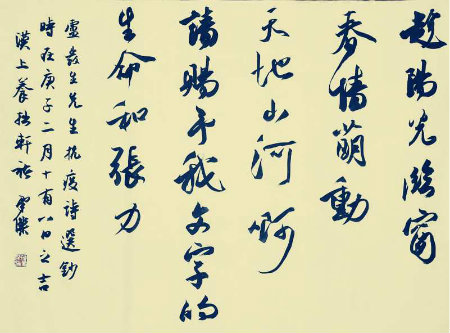 趁陽光臨窗
春情萌動
天地山河啊
請賜予我文字的
生命和張力
生先生抗疫詩選鈔
時在庚子二月十有八日之吉
漢上養拙軒